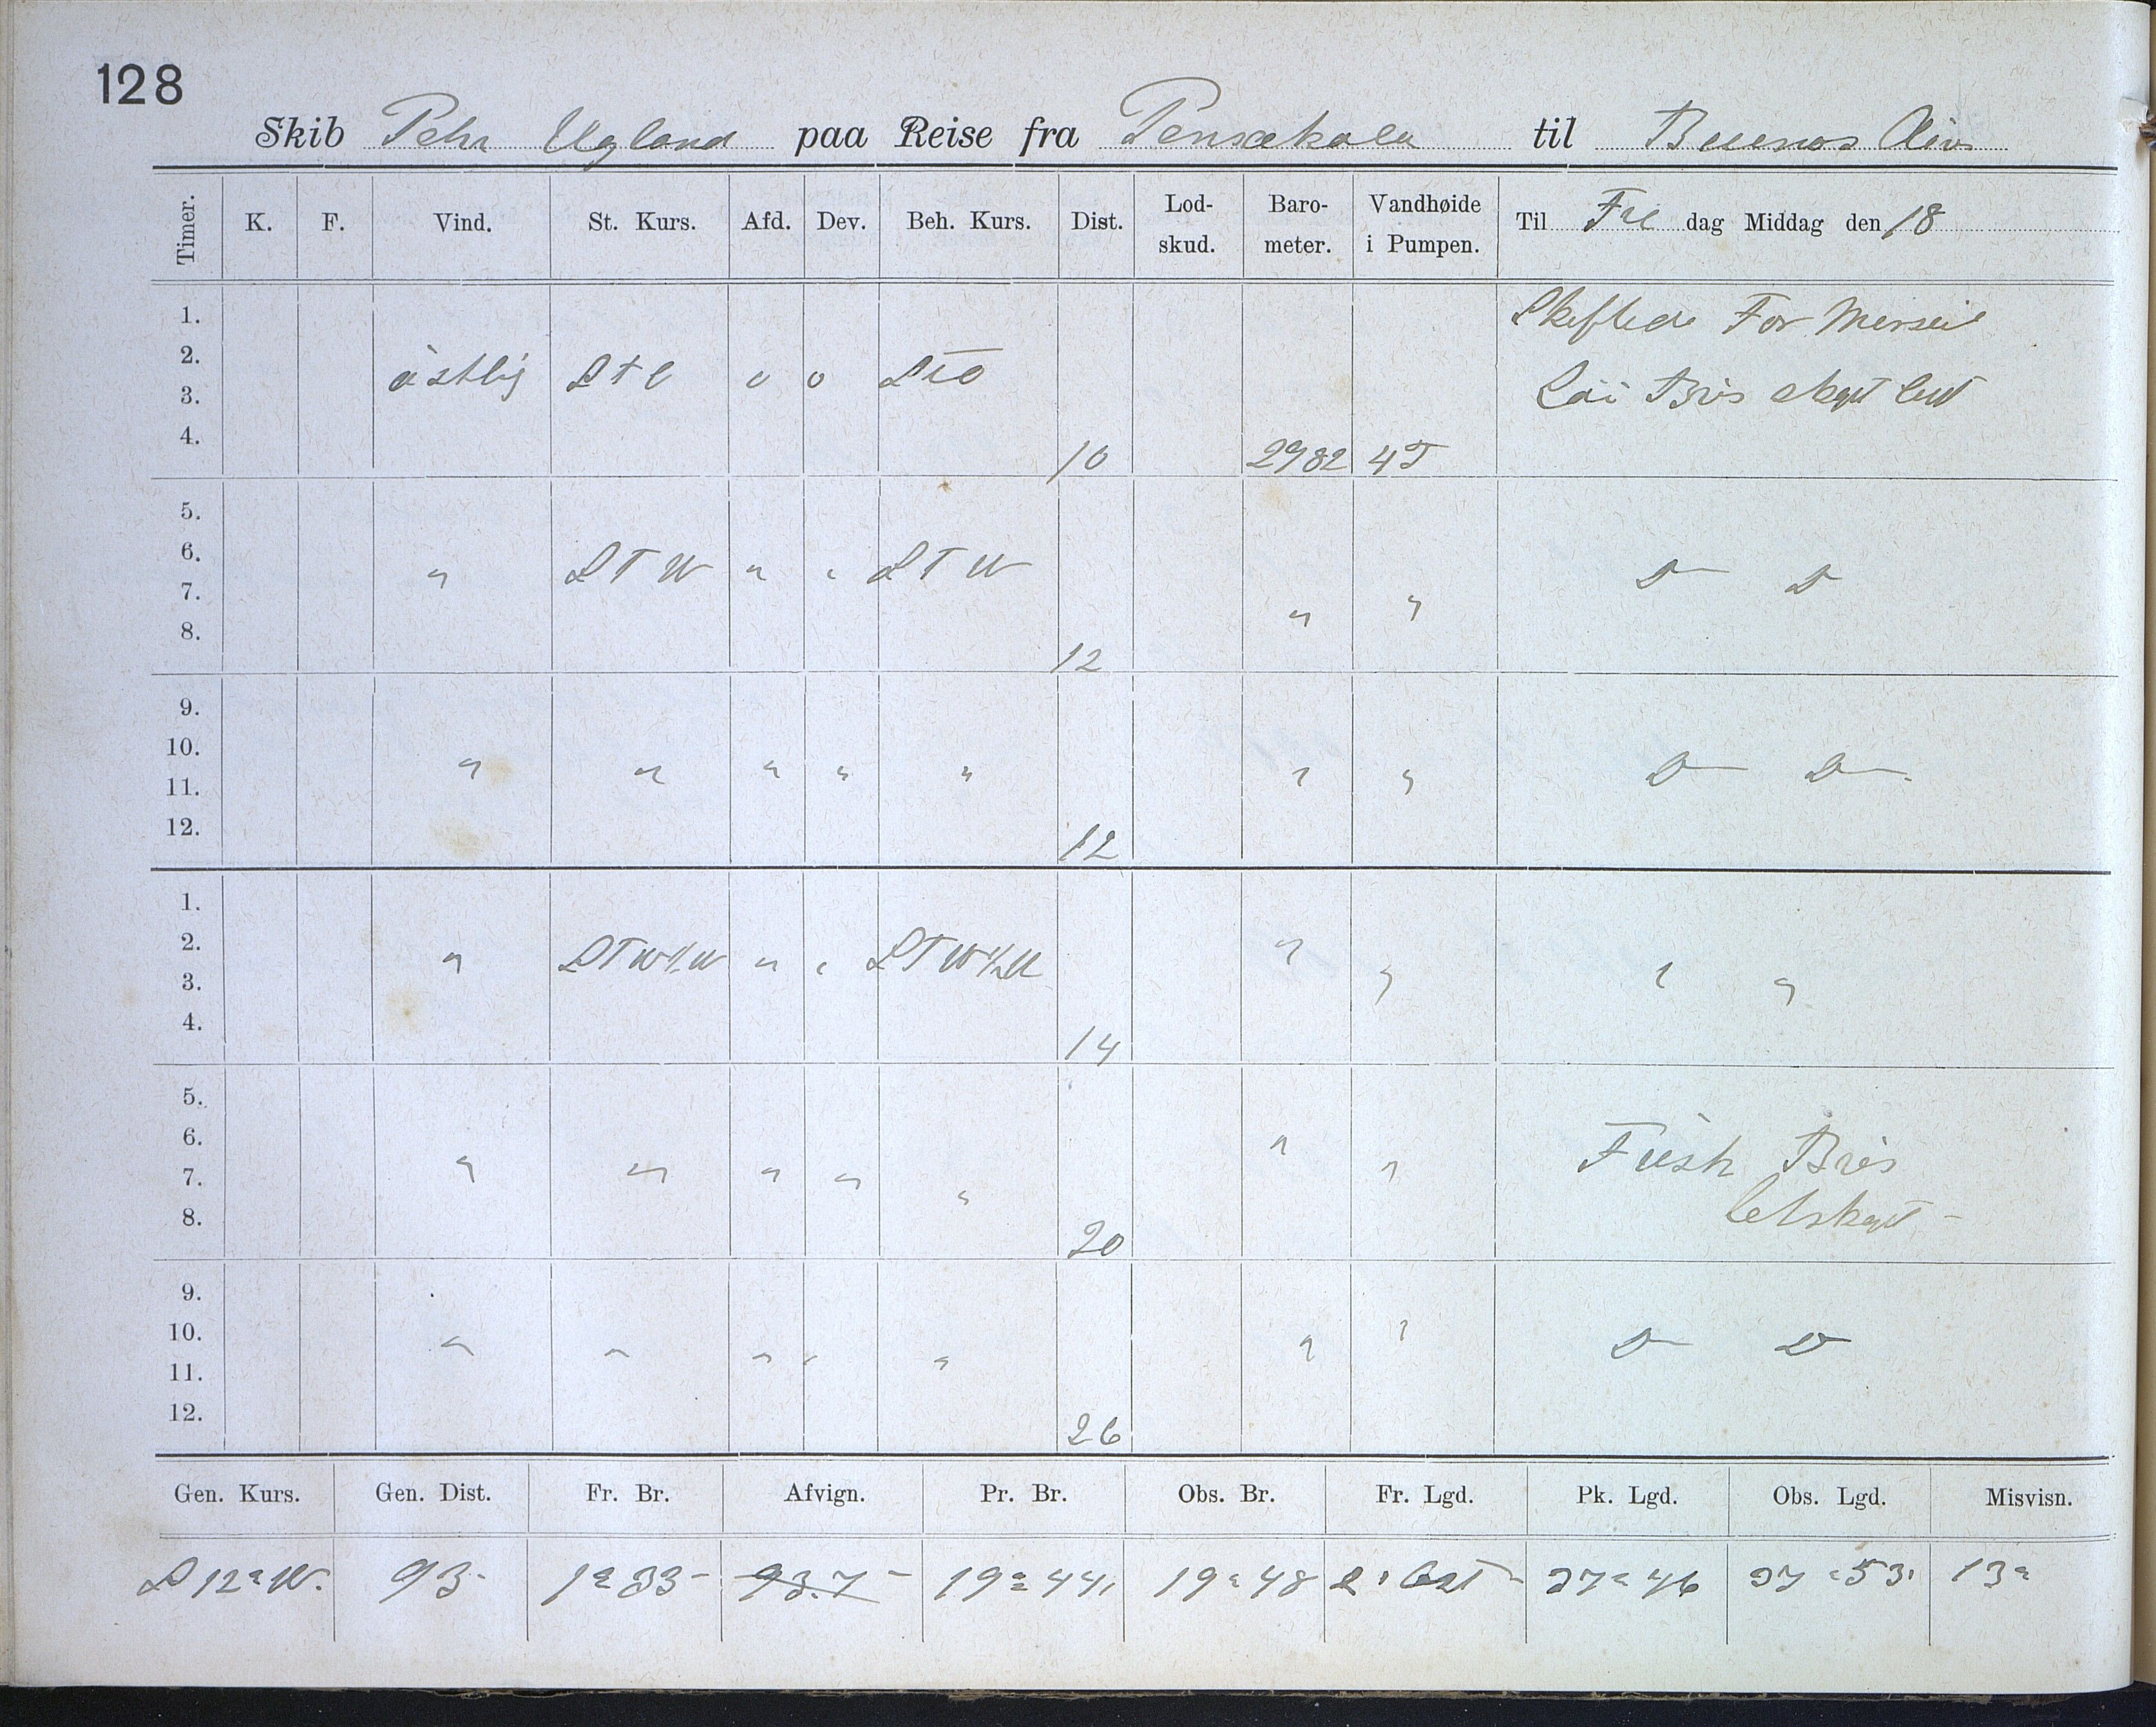 128
Skib Pehr Ugland paa Reise fra Pensakola til Buenos Aires
Timer. K. F. Vind. St. Kurs. Afd. Dev. Beh. Kurs. Dist. Lod-skud. Baro-meter. Vandhøide i Pumpen. Til Fre dag Middag den 18
1. Skiftede For Merseil
2. östlig StO o o StO
3. Löi Bris skyet luft
4. 10 2982 4T
5.
6. " STW " " STW D D
7. " "
8. 12
9.
10. " " " " " " " D D
11.
12. 12
1.
2. " STW½W " " STW½W "
3. " " "
4. 14
5.
6. " Frisk Bris
7. " " " " " "
8. 20 letskyet
9.
10. " " " " " " " D D
11.
12. 26
Gen. Kurs. Gen. Dist. Fr. Br. Afvign. Pr. Br. Obs. Br. Fr. Lgd. Pk. Lgd. Obs. Lgd. Misvisn.
S 12° W. 93 1° 33 93.7 19° 44 19° 48 37° 46 37° 53 13°